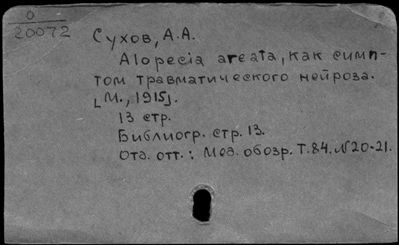 0
20072
Сухов, А.А.
Alopecia areata, как симп-
том травматического нейроза.
[М., 1915].
13 стр.
Библиогр. стр. 13.
Отд. отт.: Мед. обозр. Т.84. №20-21.